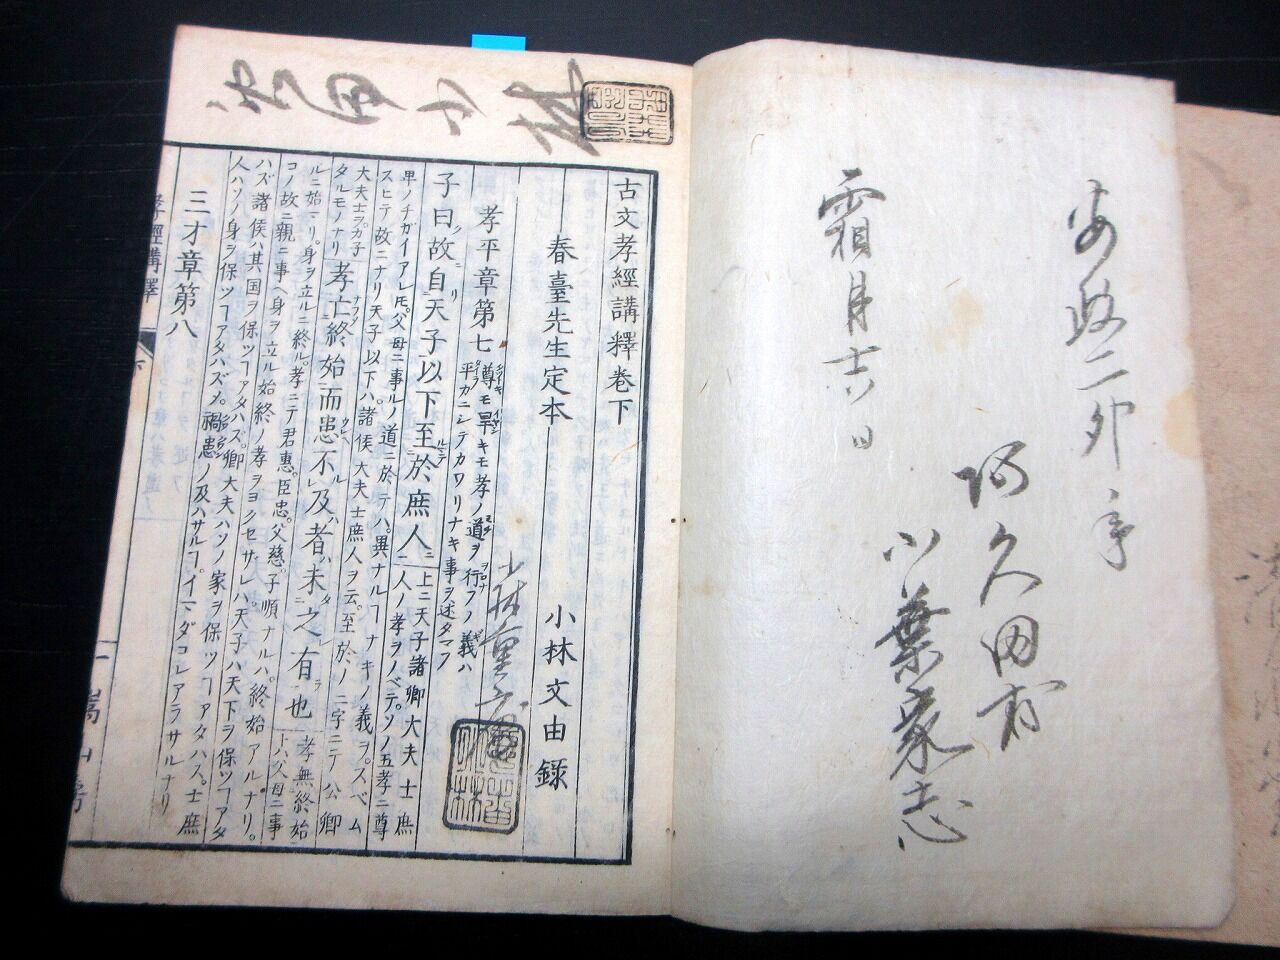 安政二卯年
霜月十六日
阿久田村
小葉家志
小林
古文孝經講釋卷下
春臺先生定本
小林文由録
孝平章第七
尊キモ卑キモ孝ノ道ヲ行フノ義ハ
平カニシテカワリナキ事ヲ述タマフ
子曰故自天子以下至於庶人
上ニ天子諸卿大夫士庶
人ノ孝ヲノベテソノ五孝ニ尊
卑ノチガイアレ𪜈父母ニ事ルノ道ニ於テハ異ナルヿナキノ義ヲスベム
スヒテ故ニナリ天子以下ハ諸侯大夫士庶人ヲ云至於ノ二字ニテ公卿
大夫士ヲカ子
タルモノナリ
孝亡終始而患不及者未之有也
孝無終始
上ハ父母ニ事
ルニ始リ身ヲ立ルニ終ル孝ニテ君惠臣忠父慈子順ナルハ終始アルナリ
コノ故ニ親ニ事ヘ身ヲ立ル始終ノ孝ヲヨクセサレハ天子ハ天下ヲ保ツヿアタ
ハズ諸侯ハ其国ヲ保ツヿアタハズ卿大夫ハソノ家ヲ保ツヿアタハズ士庶
人ハソノ身ヲ保ツヿアタハズメ禍患ノ及ハサルヿイマダコレアラサルナリ
三才章第八
孝經講釋